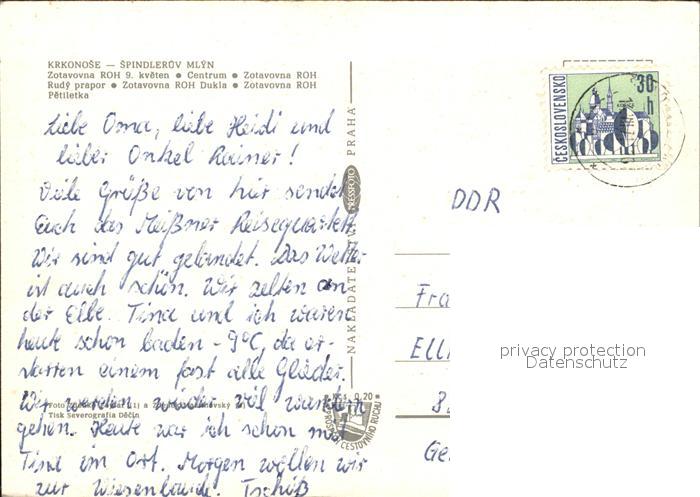 KRKONOŠE — ŠPINDLERŮV MLÝN
Zotavovna ROH 9. květen • Centrum • Zotavovna ROH
Rudý prapor • Zotavovna ROH Dukla • Zotavovna ROH
Pětiletka
Liebe Oma, liebe Heidi und
lieber Onkel Rainer!
Viele Grüße von hier sendet
Euch das Meißner Reisequartett.
Wir sind gut gelandet. Das Wetter
ist auch schön. Wir zelten an
der Elbe. Tina und ich waren
heute schon baden - 9°C, da er-
starren einem fast alle Glieder.
Wir werden wieder viel wandern
gehen. Heute war ich schon mit
Tina im Ort. Morgen wollen wir
zur Wiesenbaude. Tschüß
Tisk Severografia Děčín
NAKLADATELSTVÍ PRESSFOTO PRAHA
Kčs 0,20
CESTOVNÍHO RUCHU
ČESKOSLOVENSKO
30 h
DDR
Fra
Elli
Ge
privacy protection
Datenschutz